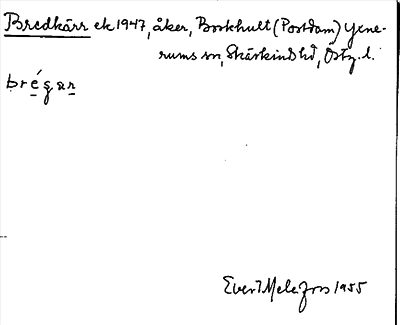 Bredkärr ek 1947, åker, Borkhult (Postdam) Yxne-
rums sn, Skärkinds hd, Östg. l.
Evert Melefors 1955